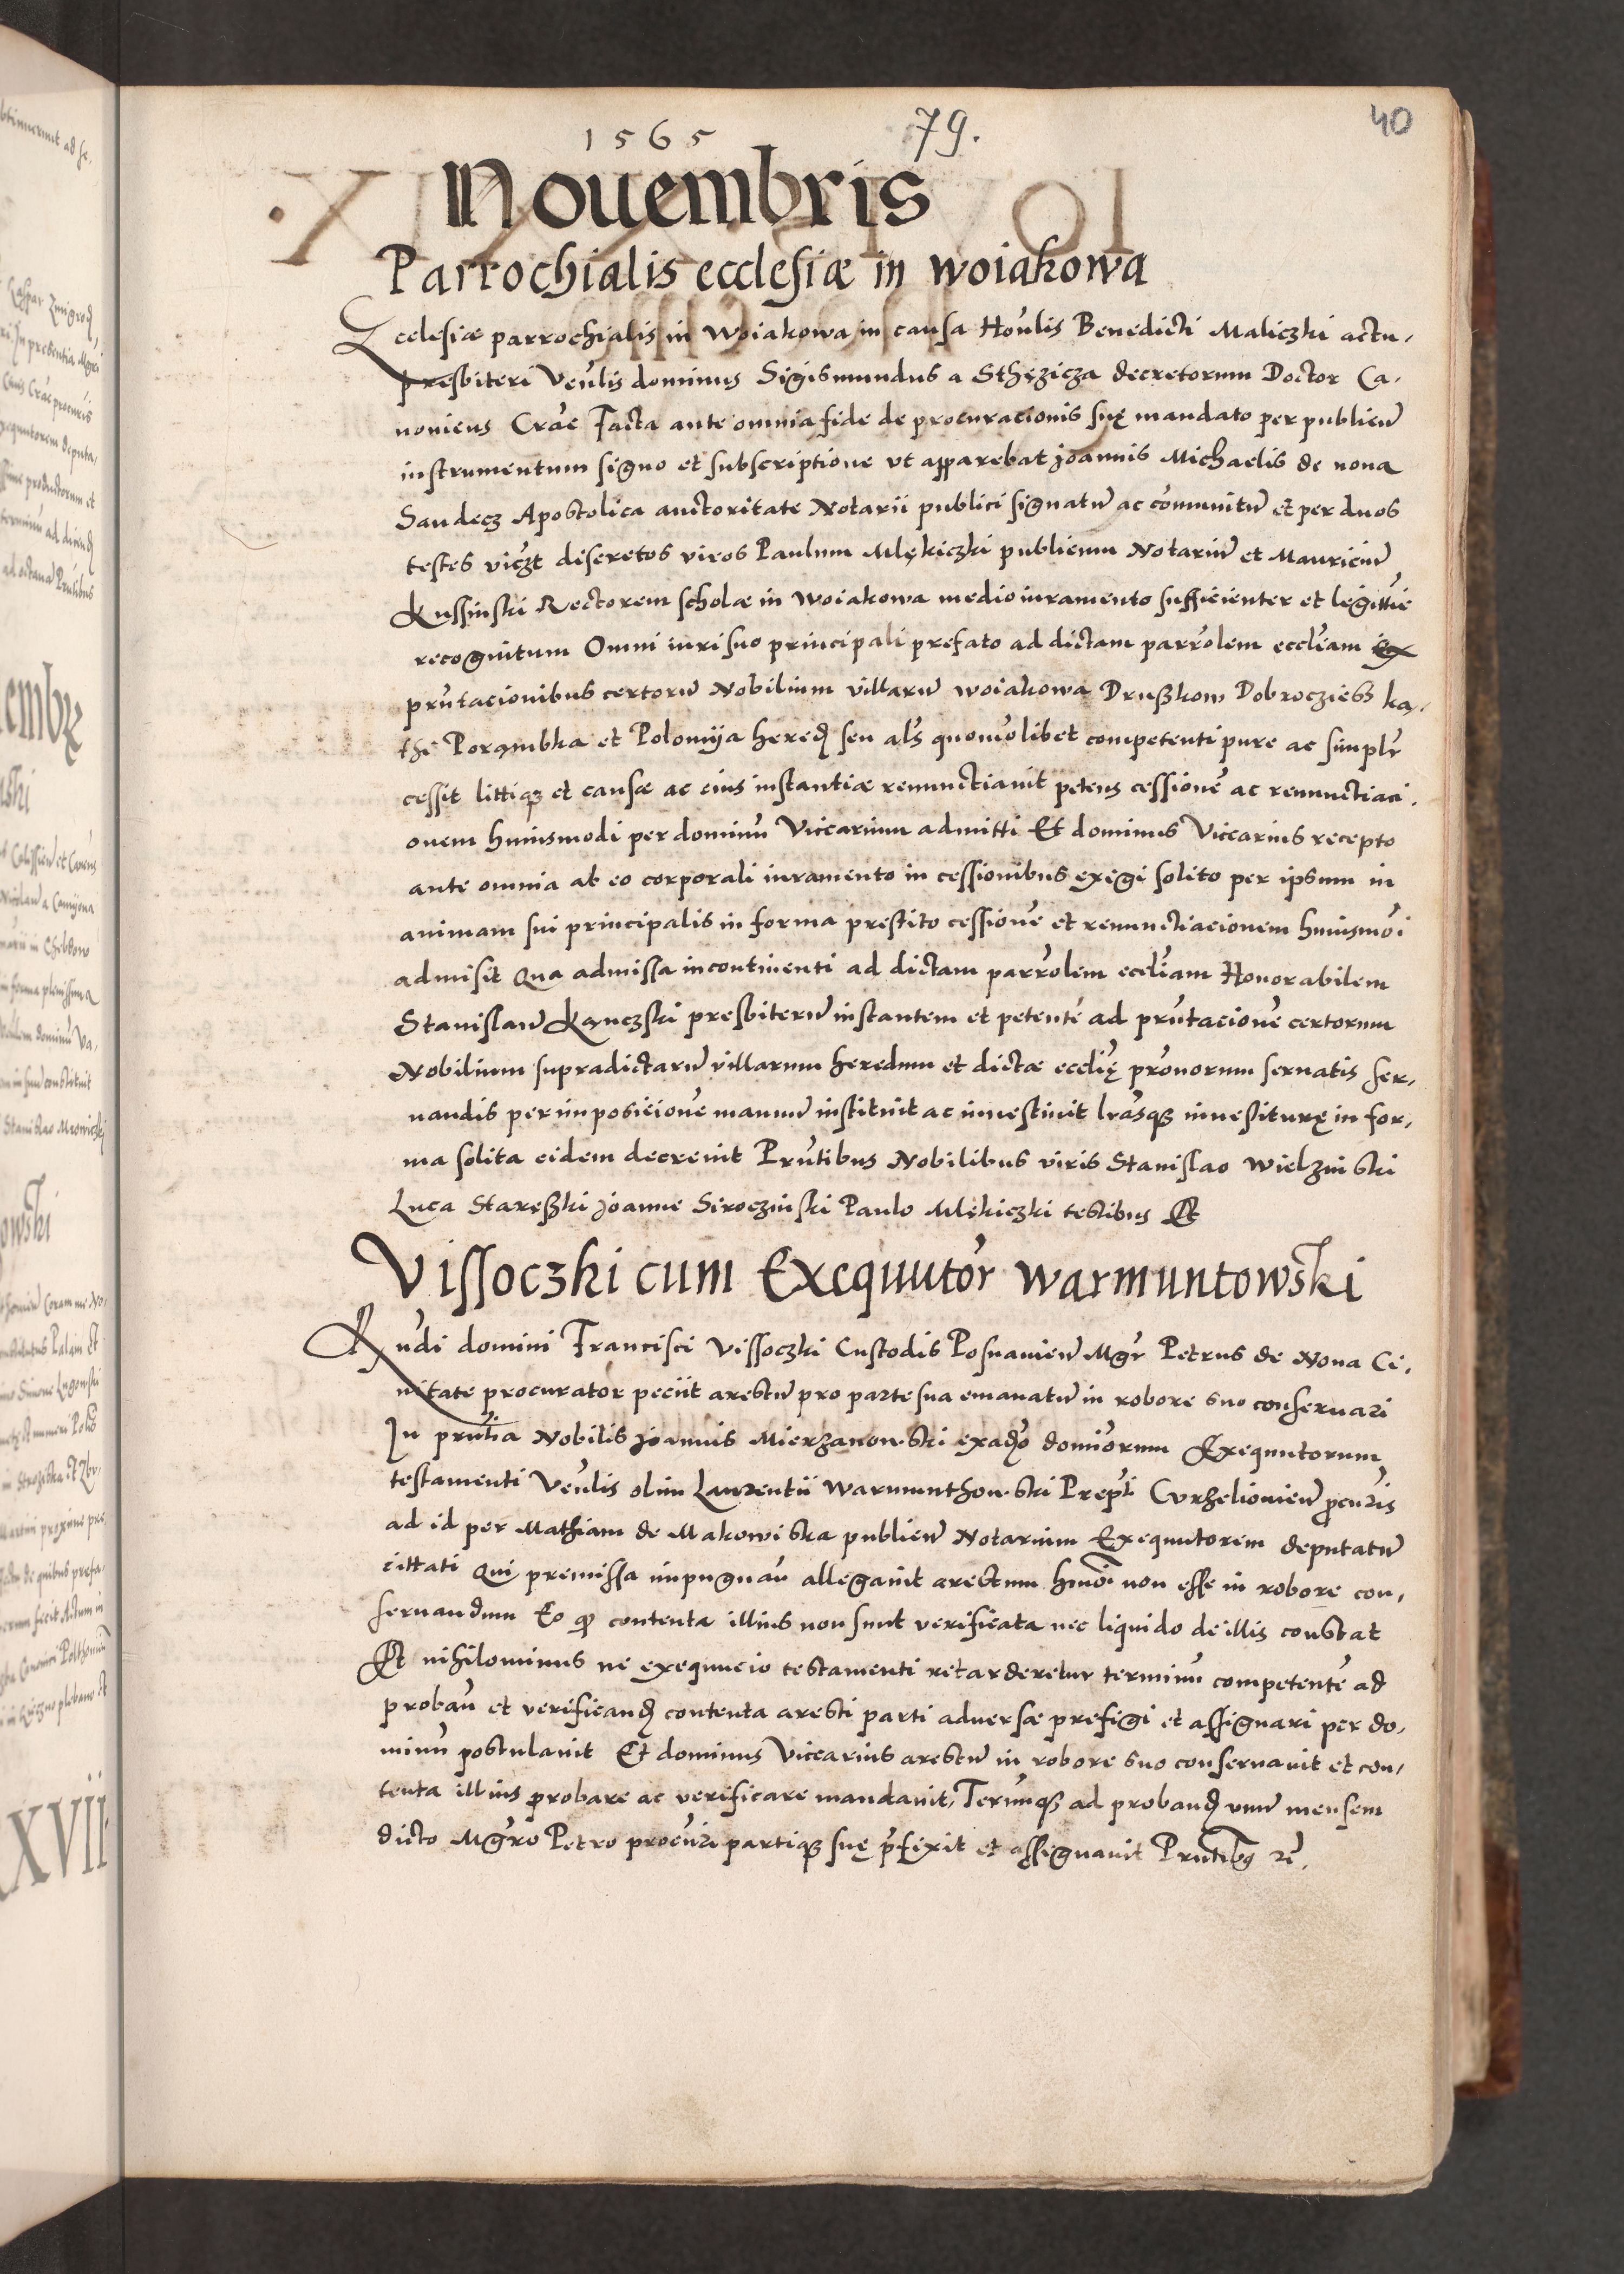 1565 79. 40
Nouembris
Parrochialis ecclesiæ in woiakowa
Ecclesiæ parrochialis in Woiakowa in causa Honlis Benedicti Maliczki actu,
presbiteri Venlis dominus Sigismundus a Sthęzicza decretorum Doctor Ca,
nonicus Crac Facta ante omnia fide de procuracionis suę mandato per publicū
instrumentum signo et subscriptione vt apparebat Joannis Michaelis de noua
Sandecz Apostolica auctoritate Notarii publici signatū ac cōmunitū et per duos
testes viczt discretos viros Paulum Mlękiczki publicum Notariū et Mauriciū
Kussinski Rectorem scholæ in Woiakowa medio iuramento sufficienter et legittīe
recognitum Omni iuri suo principali prefato ad dictam parrolem eccliam
prntacionibus certorū Nobilium villarū woiakowa Drußkow Dobrocziess ką,
thi Porąmbka et Polomÿa hered seu als quomolibet competenti pure ac simplr
cessit littiqȝ et causæ ac eius instantiæ renunctiauit petens cessionē ac renunctiaci,
onem huiusmodi per dominū Vicearium admitti Et dominus Vicearius recepto
ante omnia ab eo corporali iuramento in cessionibus exigi solito per ipsum in
animam sui principalis in forma prestito cessionē et renunctiacionem huiusmoi
admisit Qua admissa incontinenti ad dictam parrolem eccliam Honorabilem
Stanislaū Kąnczski presbiterū instantem et petentē ad prntacionē certorum
Nobilium supradictarū villarum heredum et dictæ ecclię pronorum seruatis ser,
uandis per imposicionē manuū instituit ac inuestiuit lrasqȝ inuestiturę in for,
ma solita eidem decreuit Prntibus Nobilibus viris Stanislao Wielzinski
Luca Staręßki Joanne Siroczinski Paulo Mlękiczki testibus Et
Vissoczki cum Exequutor Warmuntowski
Rndi domini Francisci Vissoczki Custodis Posnanien Mgr Petrus de Noua Ci,
uitate procurator peciit arestū pro parte sua emanatū in robore suo conseruari
In prntia Nobilis Joannis Mierzanowski ex adō dominorum Exequutorum
testamenti Venlis olim Laurentii Warmunthowski Prepti Curzeliouien procuris
ad id per Mathiam de Makowiska publicū Notarium Exequutorem deputatū
cittati Qui premissa impugnan allegauit arestum hmoi non esse in robore con,
seruandum Eo qȝ contenta illius non sunt verificata nec liquido de illis constat
Et nihilominus ne exequucio testamenti retarderetur terminū competentē ad
proban et verificand contenta aresti parti aduersæ prefigi et assignari per do,
minū postulauit Et dominus Vicearius arestū in robore suo conseruauit et con,
tenta illius probare ac verificare mandauit, Terūmqȝ ad proband vnū mensem
dicto Mgro Petro procuri partiqȝ suę prfixit et assignauit Prntibȝ